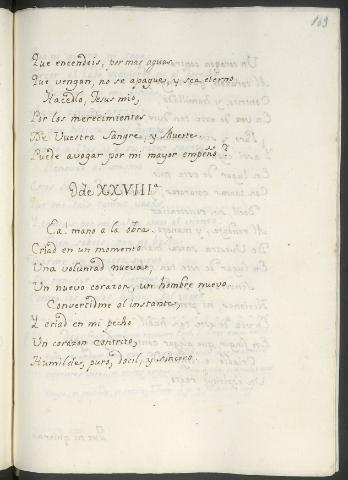 109
Que encendeis, por mas aguas
Que vengan, no se apague, y sea eterno.
Hacedlo, Jesus mio,
Por los merecimientos
De Vuestra Sangre, y Muerte
Puede avogar por mi mayor empeño?
Ode XXVIIIª
Ea! mano a la obra.
Criad en un momento
Una voluntad nueva,
Un nuevo corazon, un hombre nuevo.
Convertidme al instante,
Y criad en mi pecho
Un corazon contrito,
Humilde, puro, docil, y sincero.
Que ni quiera